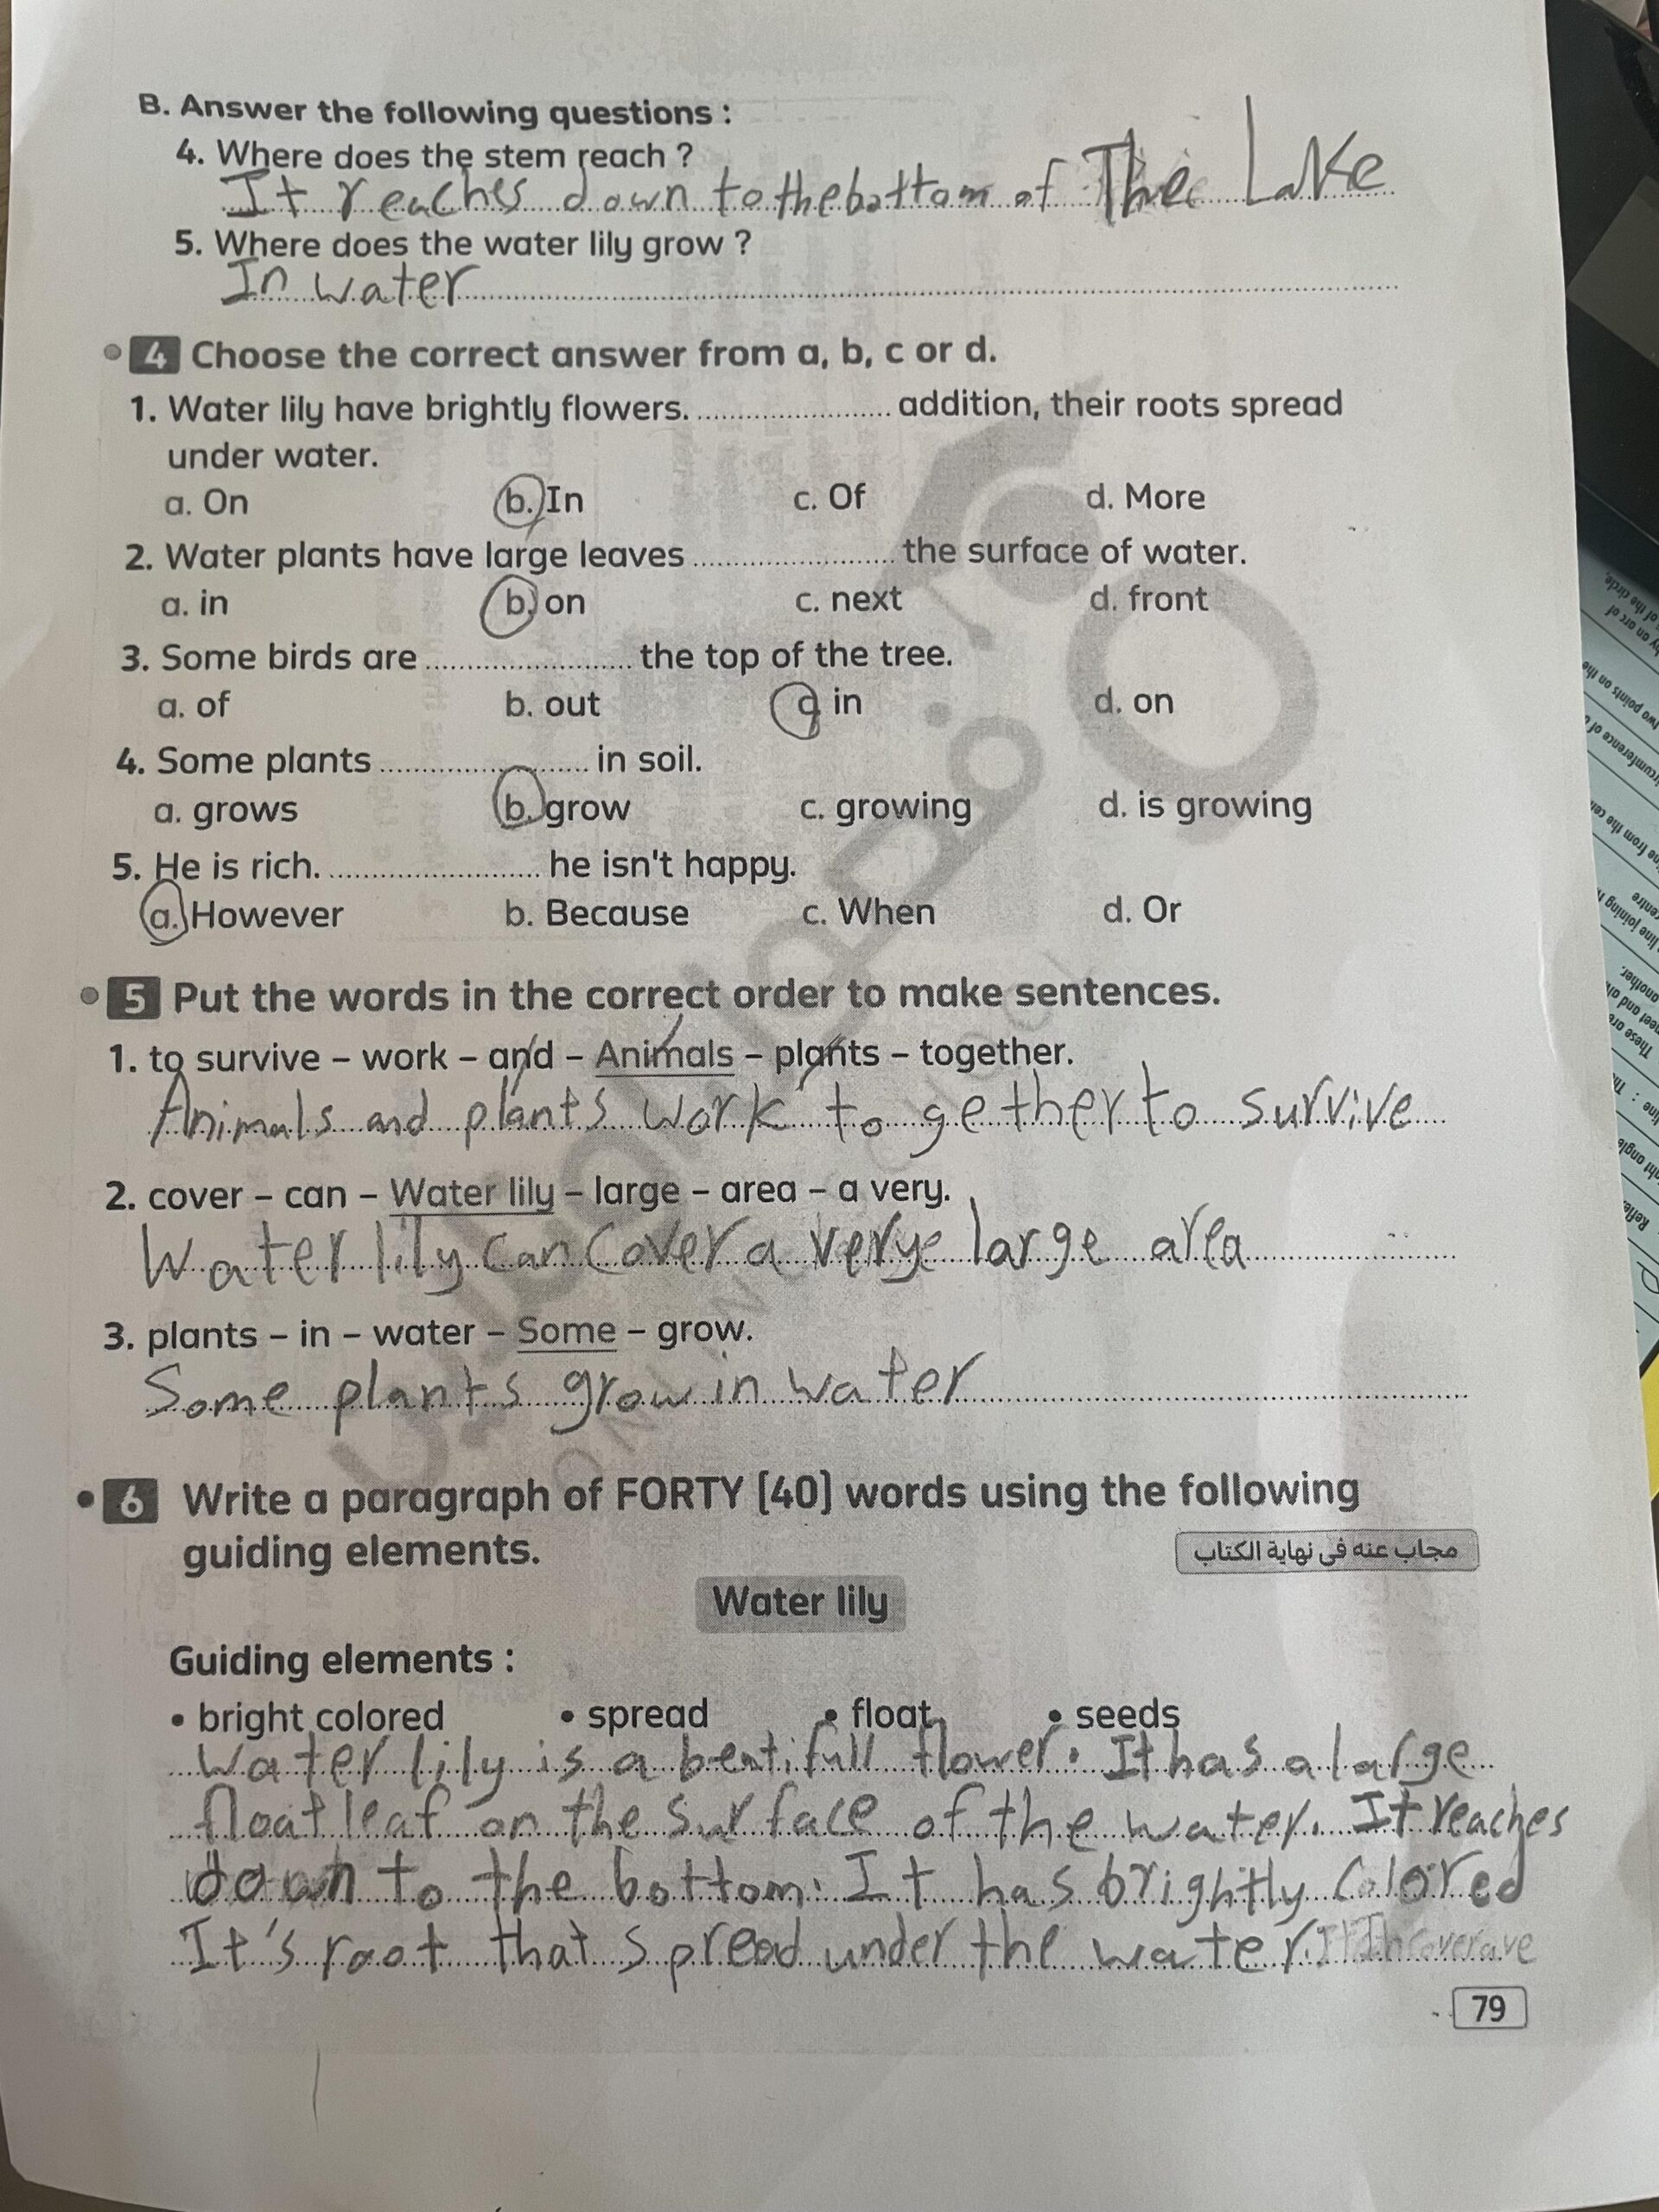 B. Answer the following questions :
4. Where does the stem reach ?
It reaches down to the bottom of The Lake
5. Where does the water lily grow ?
In water
4 Choose the correct answer from a, b, c or d.
1. Water lily have brightly flowers. .................... addition, their roots spread
under water.
a. On b. In c. Of d. More
2. Water plants have large leaves .................... the surface of water.
a. in b. on c. next d. front
3. Some birds are .................... the top of the tree.
a. of b. out c. in d. on
4. Some plants .................... in soil.
a. grows b. grow c. growing d. is growing
5. He is rich. .................... he isn't happy.
a. However b. Because c. When d. Or
5 Put the words in the correct order to make sentences.
1. to survive – work – and – Animals – plants – together.
Animals and plants work to gether to survive
2. cover – can – Water lily – large – area – a very.
Water lily can cover a verye large area
3. plants – in – water – Some – grow.
Some plants grow in water
6 Write a paragraph of FORTY [40] words using the following
guiding elements.
مجاب عنه فى نهاية الكتاب
Water lily
Guiding elements :
• bright colored • spread • float • seeds
Water lily is a beatifull flower. It has a large
float leaf on the surface of the water. It reaches
down to the bottom. It has brightly Colored
It's root that spread under the water.
79